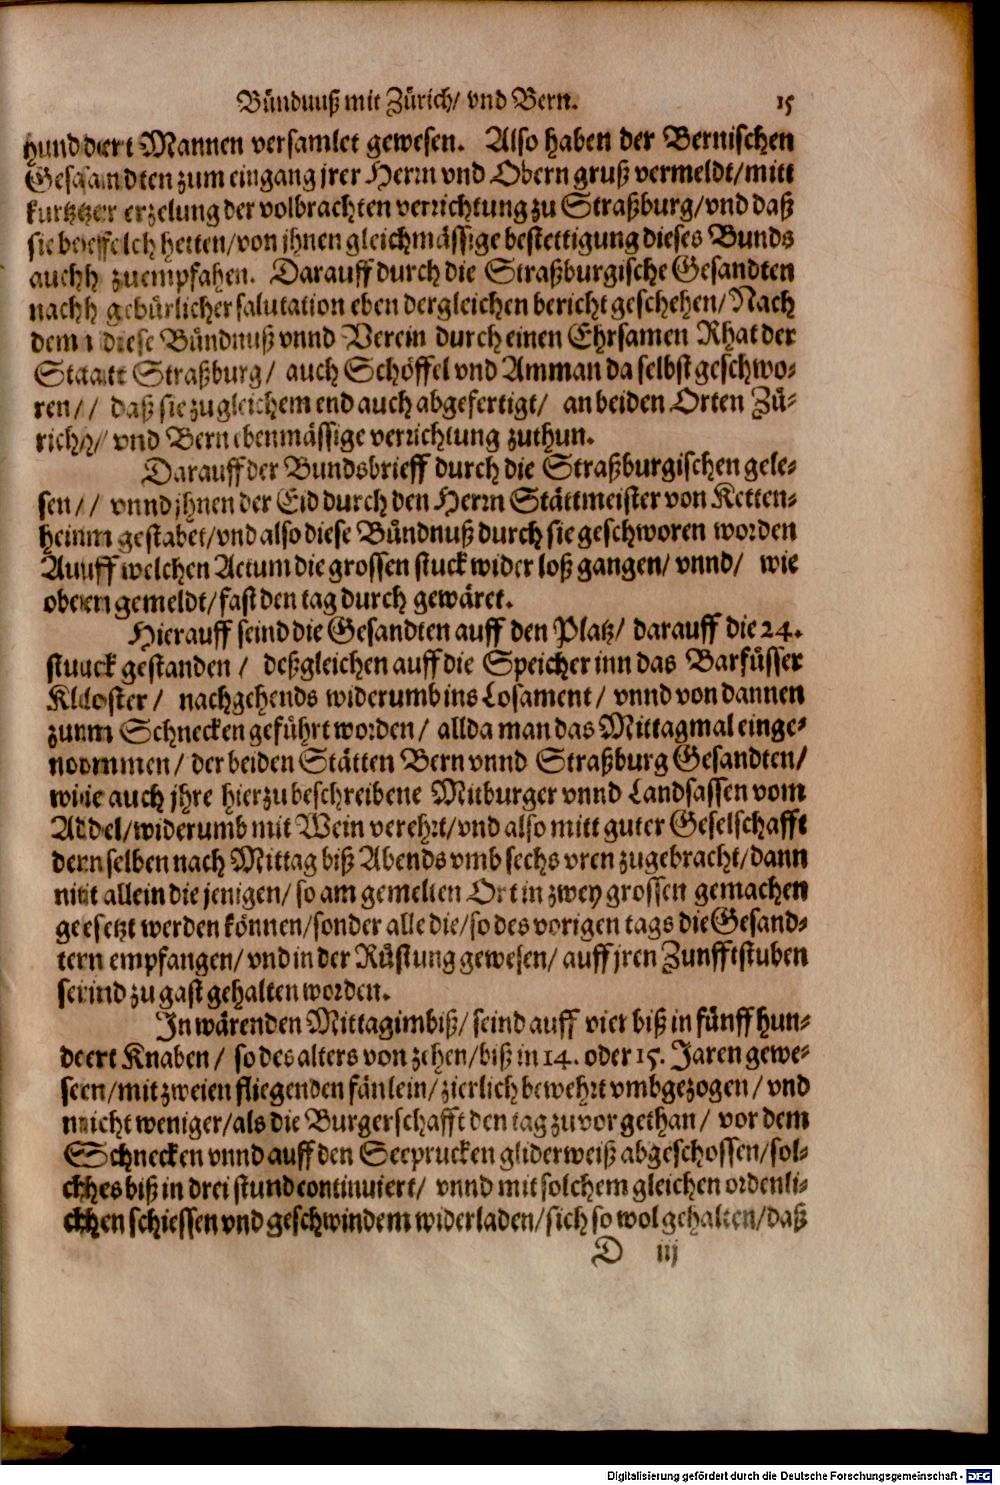 Bündnuß mit Zürich/ vnd Bern. 15
hundert Mannen versamlet gewesen. Also haben der Bernischen
Gesandten zum eingang jrer Herrn vnd Obern gruß vermeldt/mitt
kurtzer erzelung der volbrachten verrichtung zu Straßburg/vnd daß
sie befelch hetten/von jhnen gleichmässige bestettigung dieses Bunds
auch zuempfahen. Darauff durch die Straßburgische Gesandten
nach gebürlicher salutation eben dergleichen bericht geschehen/Nach
dem diese Bündnuß vnnd Verein durch einen Ehrsamen Rhat der
Statt Straßburg/ auch Schöffel vnd Amman daselbst geschwo-
ren/ daß sie zu gleichem end auch abgefertigt/ an beiden Orten Zü-
rich/ vnd Bern ebenmässige verrichtung zuthun.
Darauff der Bundsbrieff durch die Straßburgischen gele-
sen/ vnnd jhnen der Eid durch den Herrn Stättmeister von Ketten-
heim gestabet/vnd also diese Bündnuß durch sie geschworen worden
Auff welchen Actum die grossen stuck wider loß gangen/ vnnd/ wie
oben gemeldt/fast den tag durch gewäret.
Hierauff seind die Gesandten auff den Platz/ darauff die 24.
stuck gestanden/ deßgleichen auff die Speicher inn das Barfüsser
Kloster/ nachgehends widerumb ins Losament/ vnnd von dannen
zum Schnecken geführt worden/ allda man das Mittagmal einge-
nommen/ der beiden Stätten Bern vnnd Straßburg Gesandten/
wie auch jhre hierzu beschreibene Mitburger vnnd Landsassen vom
Adel/widerumb mit Wein verehrt/vnd also mitt guter Geselschafft
denselben nach Mittag biß Abends vmb sechs vren zugebracht/dann
nit allein die jenigen/ so am gemelten Ort in zwey grossen gemachen
gesetzt werden können/sonder alle die/so des vorigen tags die Gesand-
ten empfangen/vnd in der Rüstung gewesen/auff jren Zunfftstuben
seind zu gast gehalten worden.
In wärenden Mittagimbiß/ seind auff vier biß in fünff hun-
dert Knaben/ so des alters von zehen/biß in 14. oder 15. Jaren gewe-
sen/mit zweien fliegenden fänlein/zierlich bewehrt vmbgezogen/ vnd
nicht weniger/als die Burgerschafft den tag zuvor gethan/ vor dem
Schnecken vnnd auff den Seeprucken gliderweiß abgeschossen/sol-
ches biß in drei stund continuiert/ vnnd mit solchem gleichen ordenli-
chen schiessen vnd geschwindem widerladen/sich so wol gehalten/daß
D iij
Digitalisierung gefördert durch die Deutsche Forschungsgemeinschaft - DFG